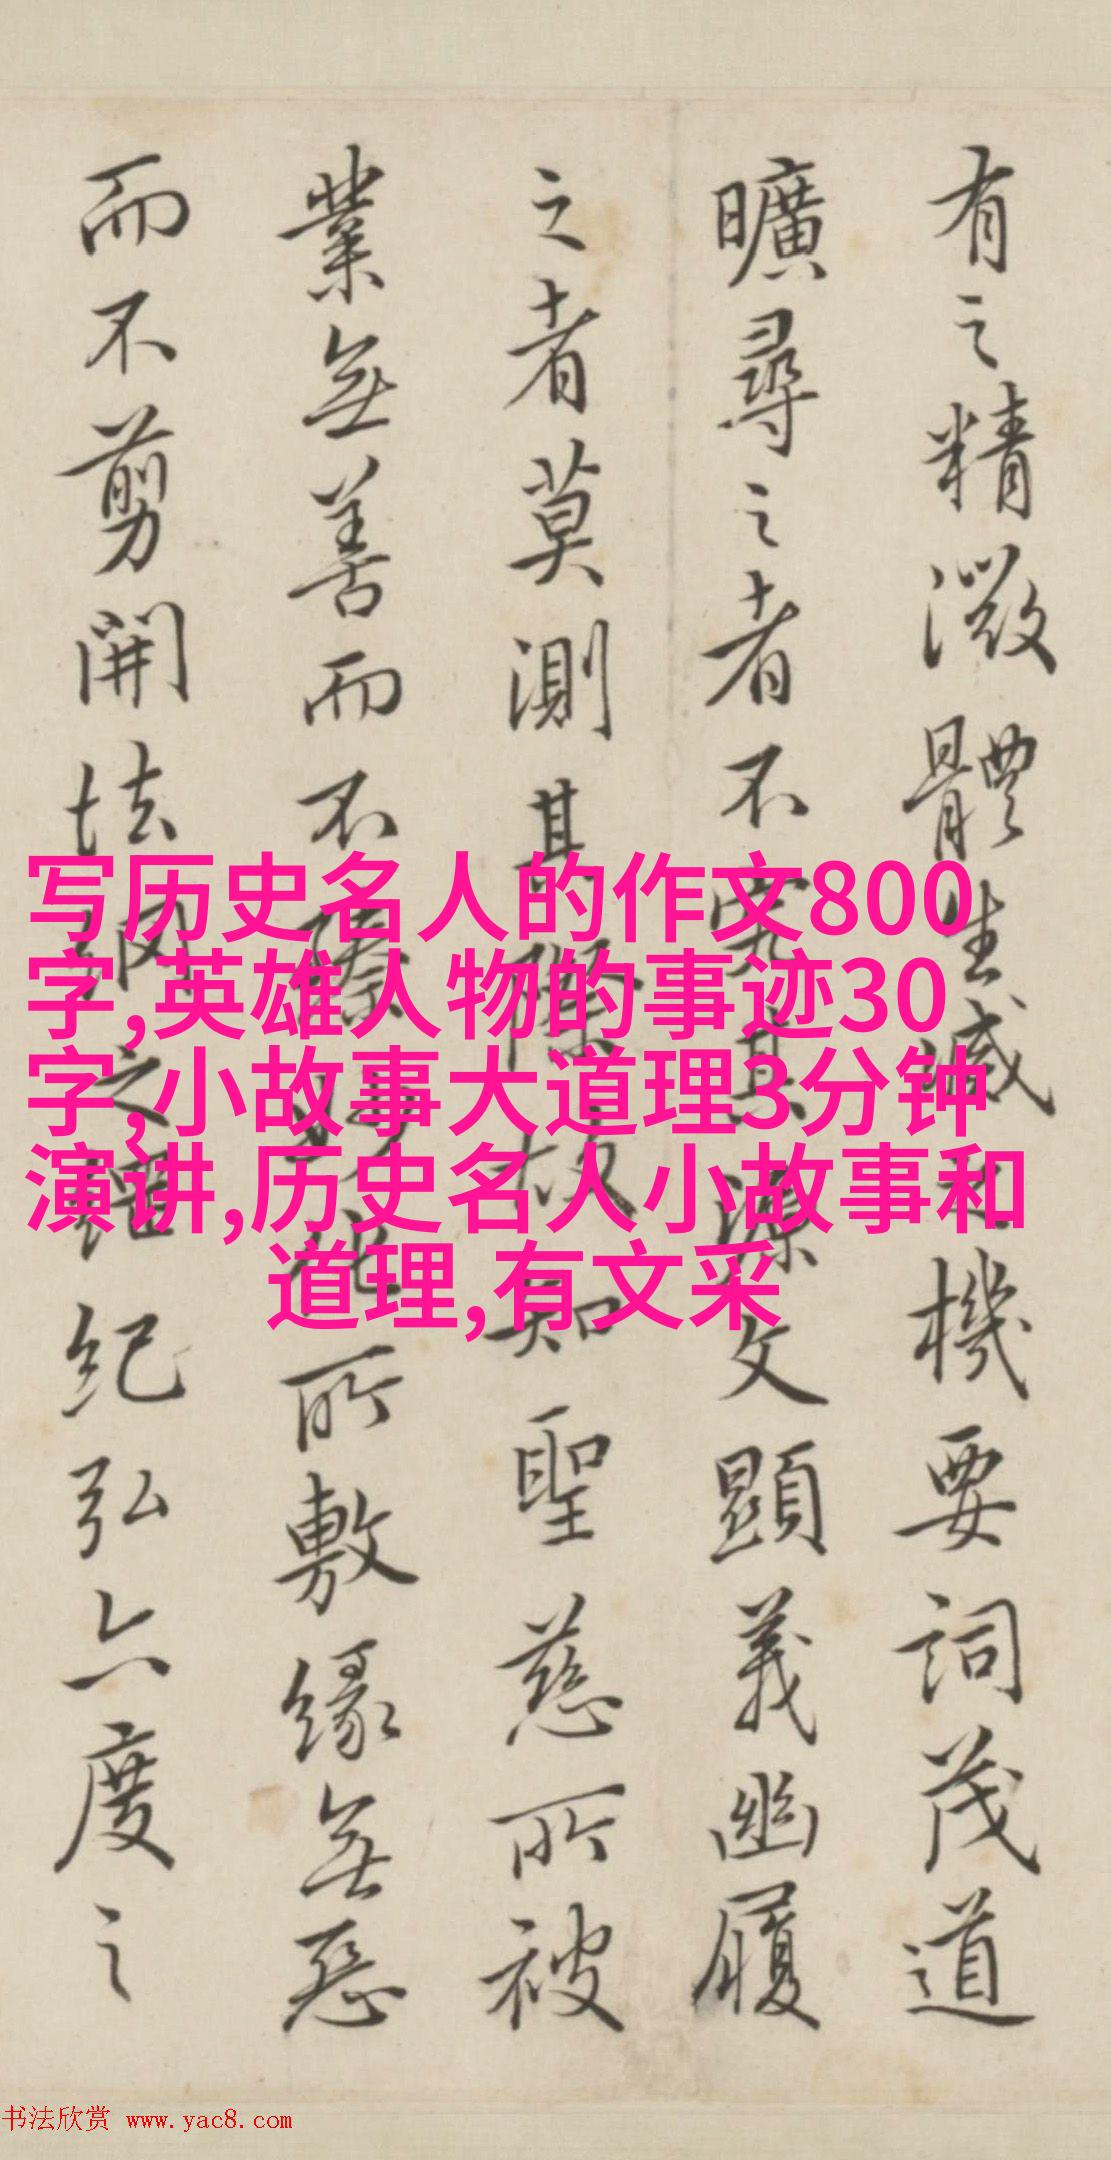 有之精微體生滅之機要詞茂道
曠尋之者不究其源文顯義幽履
之者莫測其際故知聖慈所被
業無善而不臻妙化所敷緣無惡
而不剪開法網之綱紀弘六度之
写历史名人的作文800
字,英雄人物的事迹30
字,小故事大道理3分钟
演讲,历史名人小故事和
道理,有文采
书法欣赏 www.yac8.com